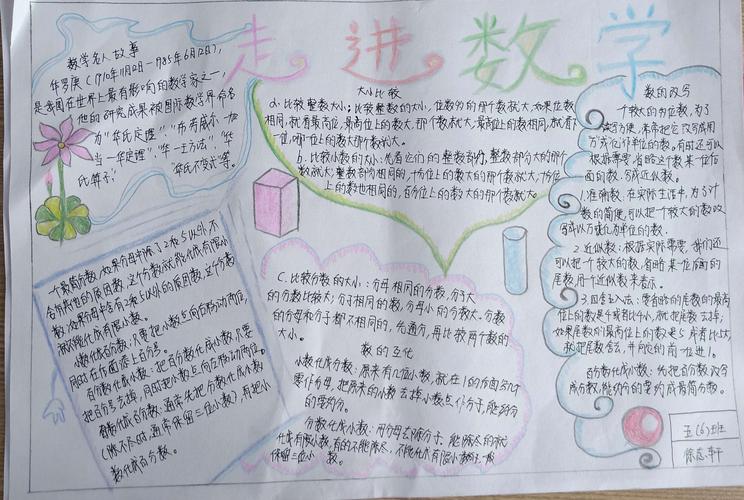 走进数学
数学名人故事
华罗庚(1910年11月12日—1985年6月12日),
是我国在世界上最有影响的数学家之一,
他的研究成果被国际数学界命名
为“华氏定理”、“布劳威尔—加
当—华定理”、“华—王方法”、“华
氏算子”、“华氏不等式”等。
大小比较
a.比较整数大小:比较整数的大小,位数多的那个数就大,如果位数
相同,就看最高位,最高位上的数大,那个数就大;最高位上的数相同,就看下
一位,哪一位上的数大那个数就大。
b.比较小数的大小:先看它们的整数部分,整数部分大的那个
数就大;整数部分相同的,十分位上的数大的那个数就大;十分位
上的数也相同的,百分位上的数大的那个数就大。
数的改写
一个较大的多位数,为了
读写方便,常常把它改写成用
万或亿作单位的数。有时还可以
根据需要,省略这个数某一位后
面的数,写成近似数。
1.准确数:在实际生活中,为了计
数的简便,可以把一个较大的数改
写成以万或亿为单位的数。
2.近似数:根据实际需要,我们还
可以把一个较大的数,省略某一位后面的
尾数,用一个近似数来表示。
3.四舍五入法:要省略的尾数的最高
位上的数是4或者比4小,就把尾数去掉;
如果尾数的最高位上的数是5或者比5大,
就把尾数舍去,并向它的前一位进1。
百分数化成小数:先把百分数改写
成分数,能约分的要约成最简分数。
一个最简分数,如果分母中除了2和5以外,不
含有其他的质因数,这个分数就能化成有限小
数;如果分母中含有2和5以外的质因数,这个分数
就不能化成有限小数。
小数化成百分数:只要把小数点向右移动两位,
同时在后面添上百分号。
百分数化成小数:把百分数化成小数,只要
把百分号去掉,同时把小数点向左移动两位。
分数化成百分数:通常先把分数化成小数
(除不尽时,通常保留三位小数),再把小
数化成百分数。
C.比较分数的大小:分母相同的分数,分子大
的分数比较大;分子相同的数,分母小的分数大。分数
的分母和分子都不相同的,先通分,再比较两个数的
大小。
数的互化
小数化成分数:原来有几位小数,就在1的后面写几个
零作分母,把原来的小数去掉小数点作分子,能约分
的要约分。
分数化成小数:用分母去除分子。能除尽的就
化成有限小数,有的不能除尽,不能化成有限小数的,一般
保留三位小数。
五(6)班